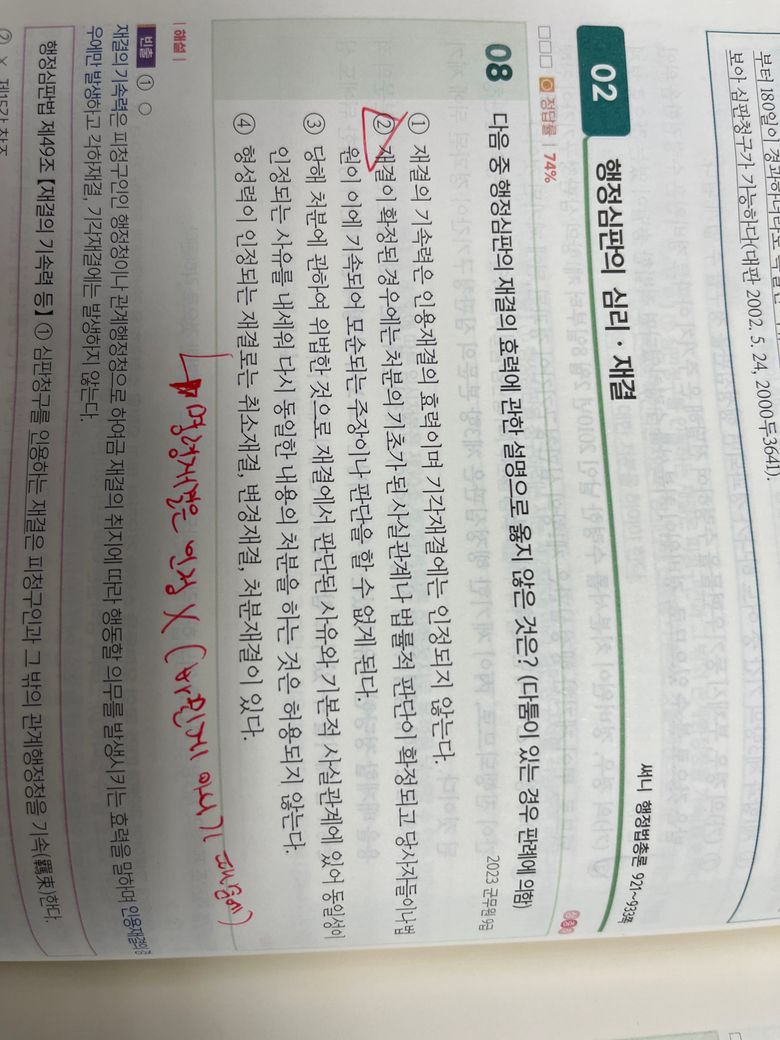 부터 180일이 경과하더라도 특별한
보아 심판청구가 가능하다(대판 2002. 5. 24, 2000두3641).
02 행정심판의 심리 · 재결
써니 행정법총론 921~933쪽
정답률 | 74%
08 다음 중 행정심판의 재결의 효력에 관한 설명으로 옳지 않은 것은? (다툼이 있는 경우 판례에 의함)
2023 군무원 9급
① 재결의 기속력은 인용재결의 효력이며 기각재결에는 인정되지 않는다.
② 재결이 확정된 경우에는 처분의 기초가 된 사실관계나 법률적 판단이 확정되고 당사자들이나 법
원이 이에 기속되어 모순되는 주장이나 판단을 할 수 없게 된다.
③ 당해 처분에 관하여 위법한 것으로 재결에서 판단된 사유와 기본적 사실관계에 있어 동일성이
인정되는 사유를 내세워 다시 동일한 내용의 처분을 하는 것은 허용되지 않는다.
④ 형성력이 인정되는 재결로는 취소재결, 변경재결, 처분재결이 있다.
명령재결은 인정 X (
때문에)
| 해설 |
빈출 ① ○
재결의 기속력은 피청구인인 행정청이나 관계행정청으로 하여금 재결의 취지에 따라 행동할 의무를 발생시키는 효력을 말하며 인용재결의
우에만 발생하고 각하재결, 기각재결에는 발생하지 않는다.
행정심판법 제49조【재결의 기속력 등】① 심판청구를 인용하는 재결은 피청구인과 그 밖의 관계행정청을 기속(羈束)한다.
② X